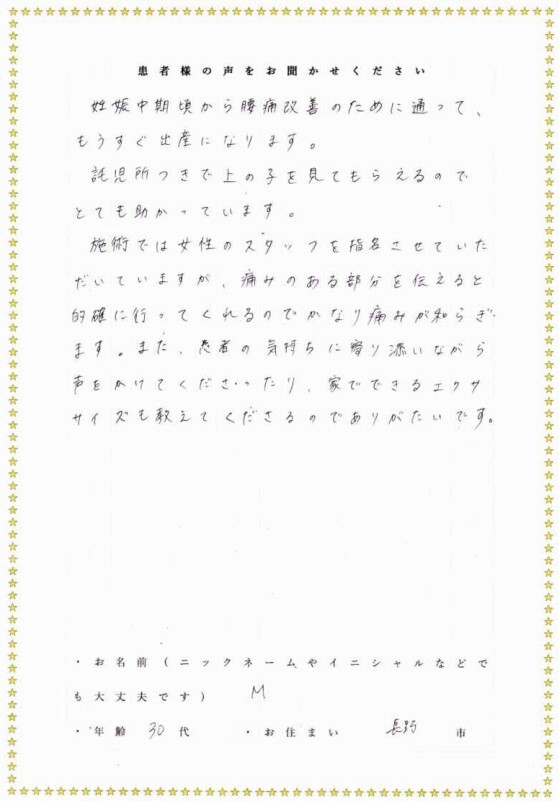 患者様の声をお聞かせください
妊娠中期頃から腰痛改善のために通って、
もうすぐ出産になります。
託児所つきで上の子を見てもらえるので
とても助かっています。
施術では女性のスタッフを指名させていた
だいていますが、痛みのある部分を伝えると
的確に行ってくれるのでかなり痛みが和らぎ
ます。また、患者の気持ちに寄り添いながら
声をかけてくださったり、家でできるエクサ
サイズも教えてくださるのでありがたいです。
・お名前(ニックネームやイニシャルなどで
も大丈夫です) M
・年齢 30代 ・お住まい 長野 市